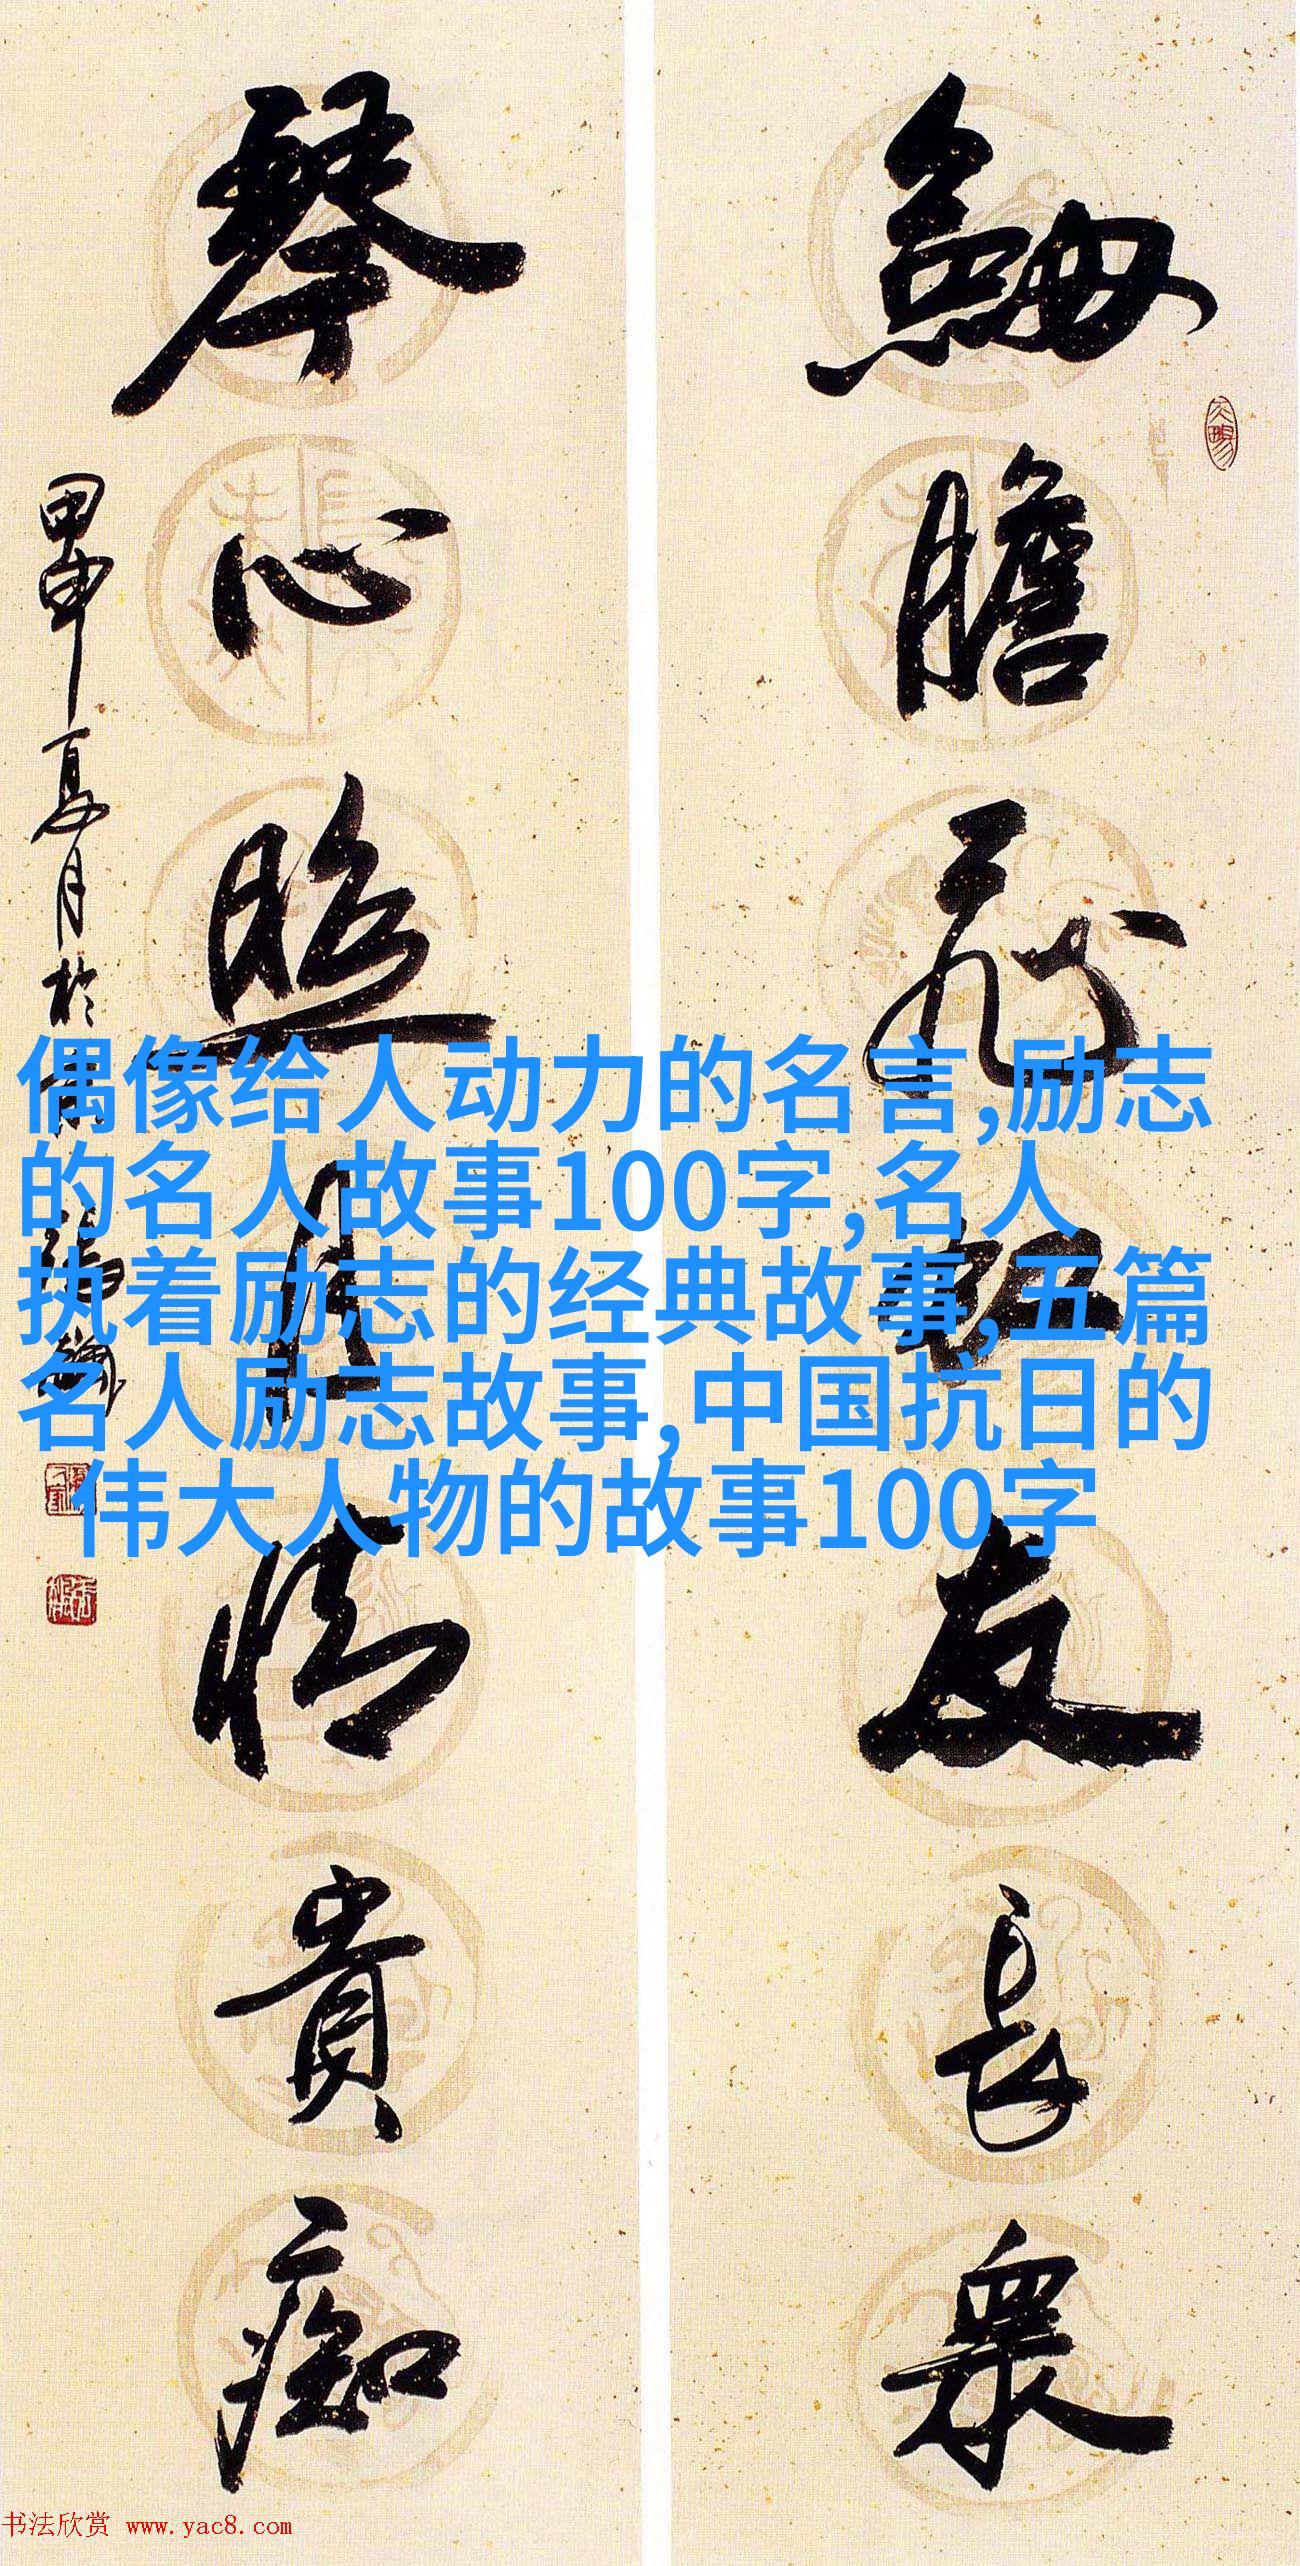 劍膽飛虹友長衆
琴心照月情貴痴
甲申夏月於
偶像给人动力的名言,励志
的名人故事100字,名人
执着励志的经典故事,五篇
名人励志故事,中国抗日的
伟大人物的故事100字
书法欣赏 www.yac8.com